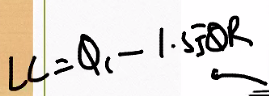 LC = Q₁ - 1.5 IQR